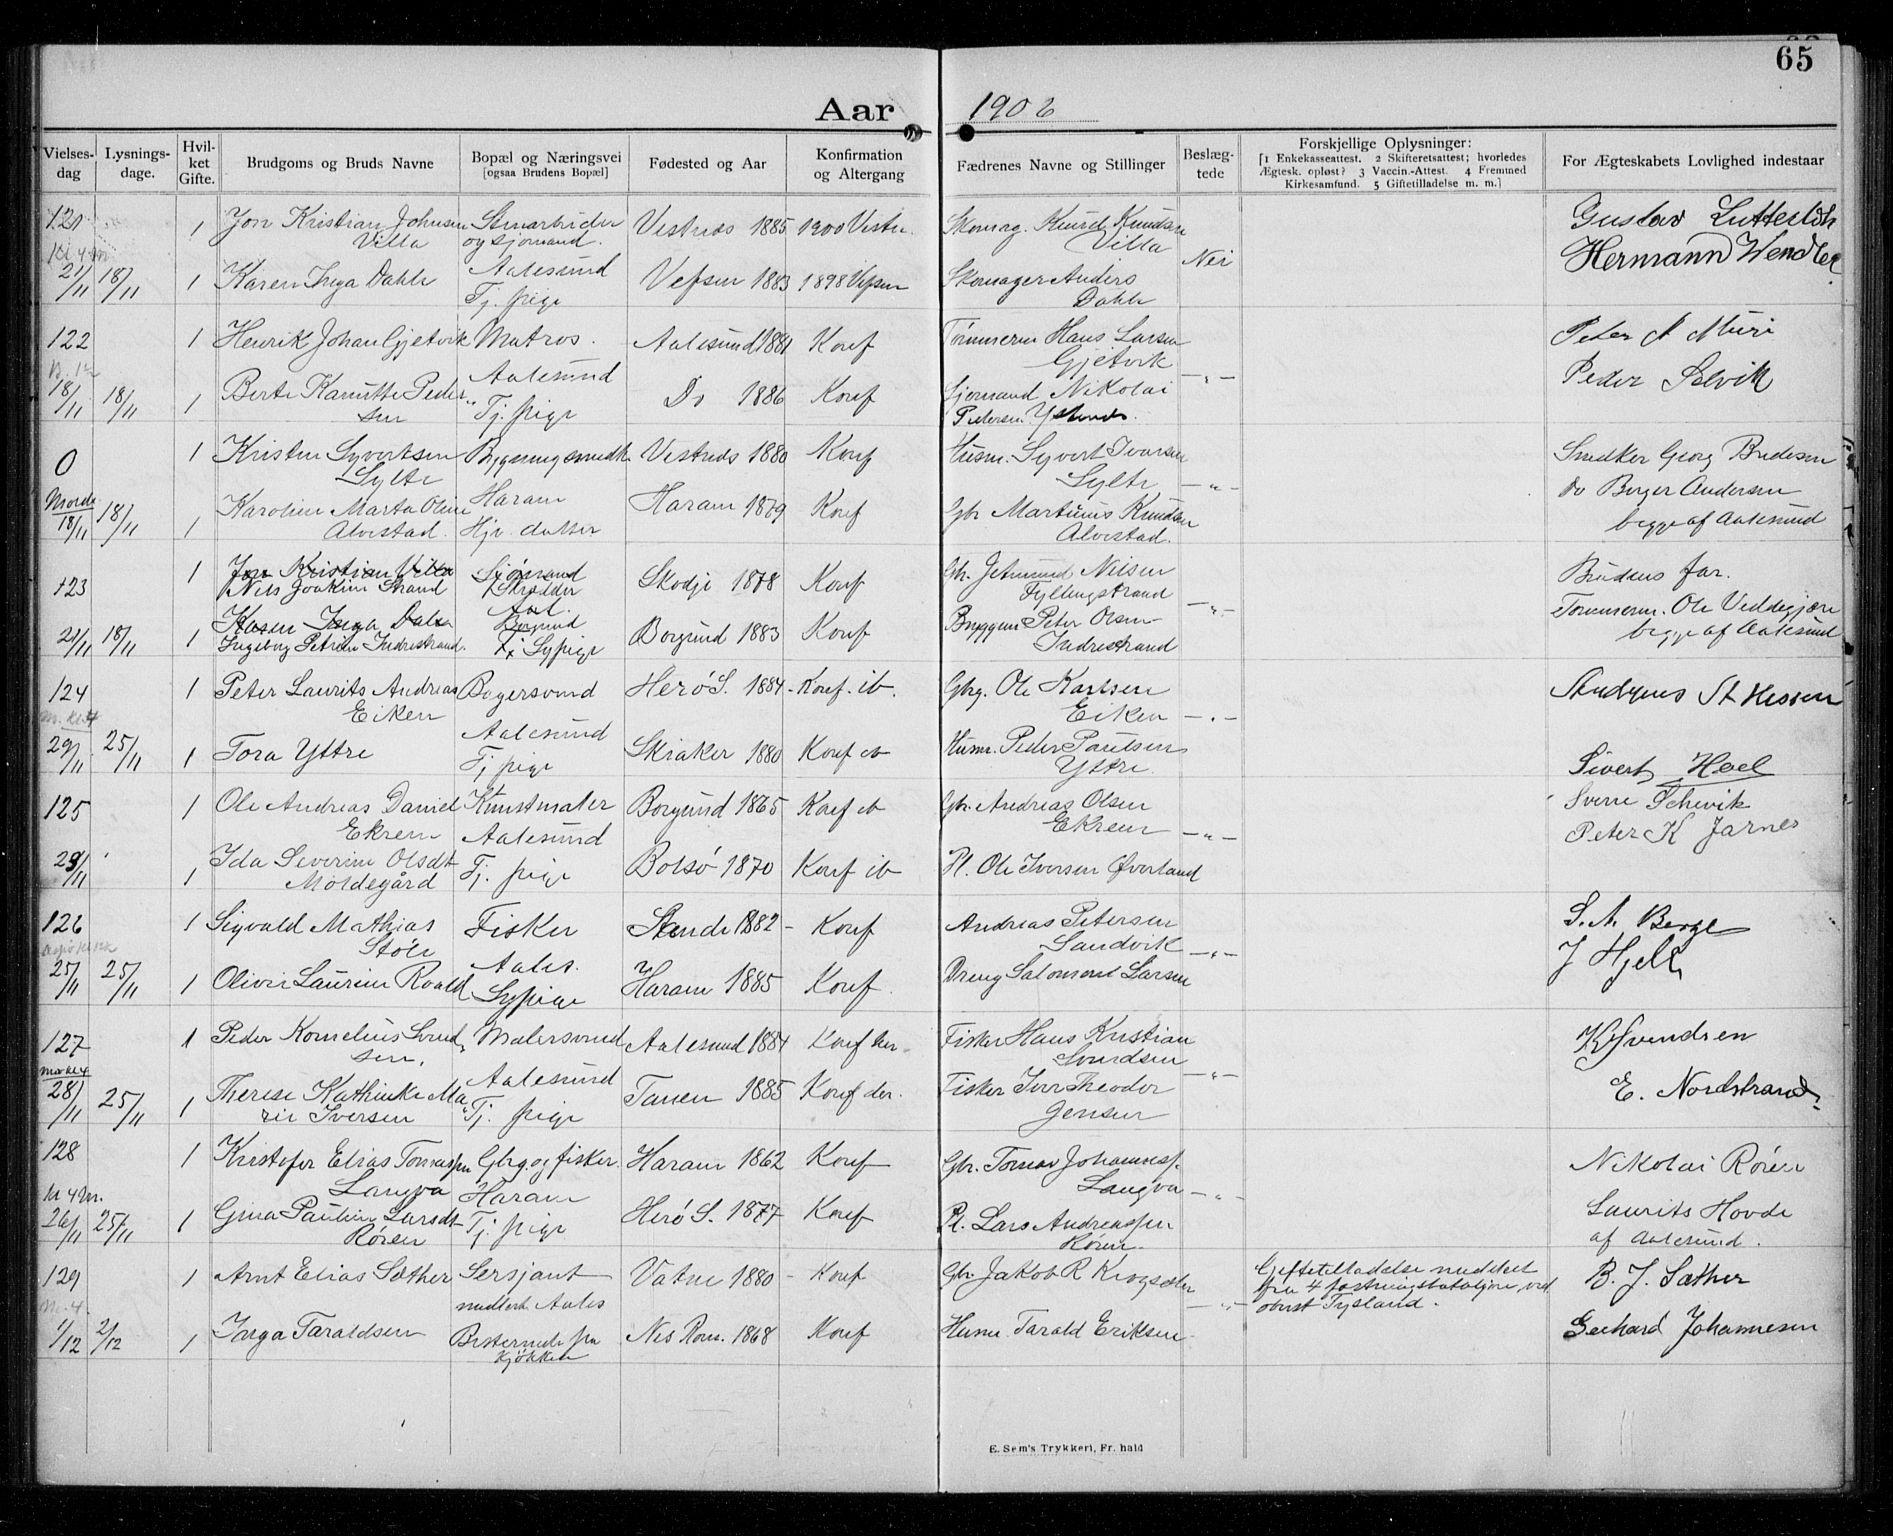 65
Aar 1906
Vielses-dag
Lysnings-dage.
Hvil-ket Gifte.
Brudgoms og Bruds Navne
Bopæl og Næringsvei [ogsaa Brudens Bopæl]
Fødested og Aar
Konfirmation og Altergang
Fædrenes Navne og Stillinger
Beslæg-tede
Forskjellige Oplysninger:
[1 Enkekasseattest. 2 Skifteretsattest; hvorledes
Ægtesk. opløst? 3 Vaccin.-Attest. 4 Fremmed
Kirkesamfund. 5 Giftetilladelse m. m.]
For Ægteskabets Lovlighed indestaar
121 1 Jon Kristian Johnsen Villa Stenarbeider og sjømand. Vestnes 1885 1900 Vestn. Skomag. Knud Knudsen Villa Nei Gustav
21/11 18/11 1 Karen Inga Dahle Aalesund Tj. pige Vefsen 1883 1898 Vefsen Skomager Anders Dahle Hermann Wendler
122 1 Henrik Johan Gjetvik Matros. Aalesund 1881 Konf Tømmerm Hans Larsen Gjetvik Peter A Muri
18/11 18/11 1 Berte Kanutte Peder sen Aalesund Tj. pige Do 1886 Konf Sjømand Nikolai Pedersen —"— Peder Selvik
0 1 Kristen Syvertsen Sylte Bygningssnedk Vestnes 1880 Konf Husm. Syvert Iversen Sylte Snedker Georg Brudesen
Molde 18/11 18/11 1 Karoline Marta Oline Alvestad. Haram Hjv. datter Haram 1879 Konf Gbr Martinus Knudsen Alvestad. —"— Do Berger Andersen begge af Aalesund
123 1 Jon Kristian Villa Nils Joakim Strand Sjømand Skrædder Aal. Skodje 1878 Konf Gbr. Jetmund Nilsen Fyllingstrand Brudens far.
21/11 18/11 1 Karen Inga Dale Ingeborg Petrine Indrestrand. Borgund Sypige Borgund 1883 Konf Byggm Peter Olsen Indrestrand —"— Tømmerm. Ole Veddegjære begge af Aalesund
124 1 Peter Laurits Andreas Eiken Bagersvend Herø S. 1884 - Konf. ib. Gbrg. Ole Karlsen Eiken —"— St Hessen
29/11 25/11 1 Tora Yttre Aalesund Tj pige Skiaker 1880 Konf ib Husm. Peder Paulsen Yttre. Sivert Hoel
125 1 Ole Andreas Daniel Ekrem Kunstmaler Borgund 1865 Konf ib Gbr. Andreas Olsen Ekrem —"— Sverre Schevik
29/11 1 Ida Severine Olsdt Moldegård Aalesund Tj. pige Bolsø 1870 Konf ib Pl. Ole Iversen Øverland Peter K Jarnes
126 1 Sigvald Mathias Støle Fisker Sande 1882 - Konf Andreas Petersen Sandvik —"— S. A. Berge
25/11 25/11 1 Olivie Laurine Roald Aales. Sypige Haram 1885 Konf. Dreng Salomon Larsen J Hjelle
127 1 Peder Kornelius Svend sen. Malersvend Aalesund 1884 Konf her Fisker Hans Kristian Svendsen K Svendsen
28/11 25/11 1 Therese Kathinka Ma rie Iversen Aalesund Tj. pige Tanen 1885 Konf der. Fisker Iver Theodor Jensen —"— E. Nordstrand
128 1 Kristofer Elias Tomassen Longva Gbrg. og fisker. Haram 1862 Konf Gbr. Tomas Johannesss. Longva —"— Nikolai Røren
Kl 4 M. 26/11 25/11 1 Gina Pauline Larsdt. Røren Haram Tj. pige Herø S. 1877 Konf Pl. Lars Andreassen Røren. Laurits Hovde af Aalesund.
129 1 Arnt Elias Sæther Sersjant midlert. Aales Vatne 1880 - Konf Gbr Jakob R Krogsæter —"— Giftetilladelse meddelt fra 4 fæstningsbataljon ved oberst Tysland. B. J. Sæther
1/12 2/12 1 Inga Taraldsen Bestyrerinde fra kjøkken Nes Rom. 1868 Konf Husm. Tarald Eriksen Gerhard Johannesen
E. Sem's Trykkeri, Fr. hald